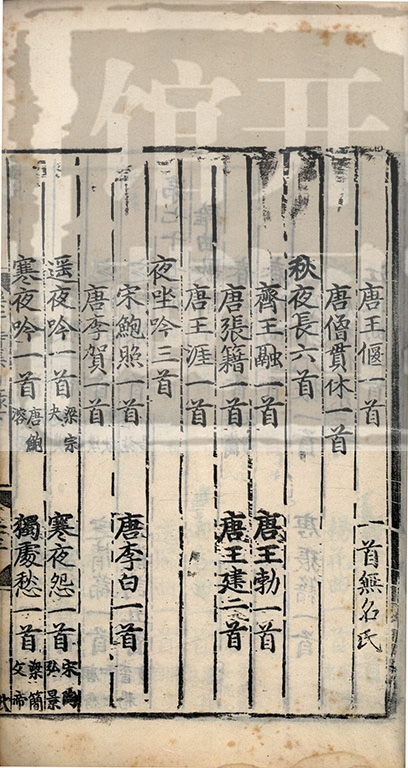 唐王偃一首 一首無名氏
唐僧貫休一首
秋夜長六首
齊王融一首 唐王勃一首
唐張籍一首 唐王建二首
唐王涯一首
夜坐吟三首
宋鮑照一首 唐李白一首
唐李賀一首
遥夜吟一首 梁宗夬 寒夜怨一首 宋陶弘景
寒夜吟一首 唐鮑溶 獨處愁一首 梁簡文帝